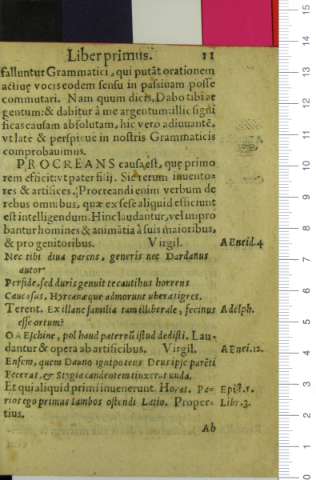 Liber primus. 11
falluntur Grammatici, qui putāt orationem
actiuę vocis eodem sensu in passiuam posse
commutari. Nam quum dicis, Dabo tibi ar
gentum: & dabitur à me argentum: illic signi
ficas causam absolutam, hic vero adiuuantē,
vt latè & perspicuè in nostris Grammaticis
comprobauimus.
PROCREANS causa, est, quę primo
rem efficit: vt pater filij. Sic rerum inuento-
res & artifices. Procreandi enim verbum de
rebus omnibus, quæ ex sese aliquid efficiunt
est intelligendum. Hinc laudantur, vel impro
bantur homines & animātia à suis maioribus,
& progenitoribus. Virgil. AEneid.4
Nec tibi diua parens, generis nec Dardanus
autor
Perfide, sed duris genuit te cautibus horrens
Caucasus, Hyrcanæque admorunt vbera tigres.
Terent. Ex illane familia tam illiberale, facinus Adelph.
esse ortum?
O AEschine, pol haud paternū istud dedisti. Lau-
dantur & opera ab artificibus. Virgil. AEnei.12.
Ensem, quem Dauno ignipotens Deus ipse parēti
Fecerat, & Stygia candentem tinxerat unda.
Et qui aliquid primi inuenerunt. Horat. Pa- Epist.1.
rios ego primus Iambos ostendi Latio. Proper- Libr.3.
tius.
Ab
15
14
13
12
11
10
9
8
7
6
5
4
3
2
1
0